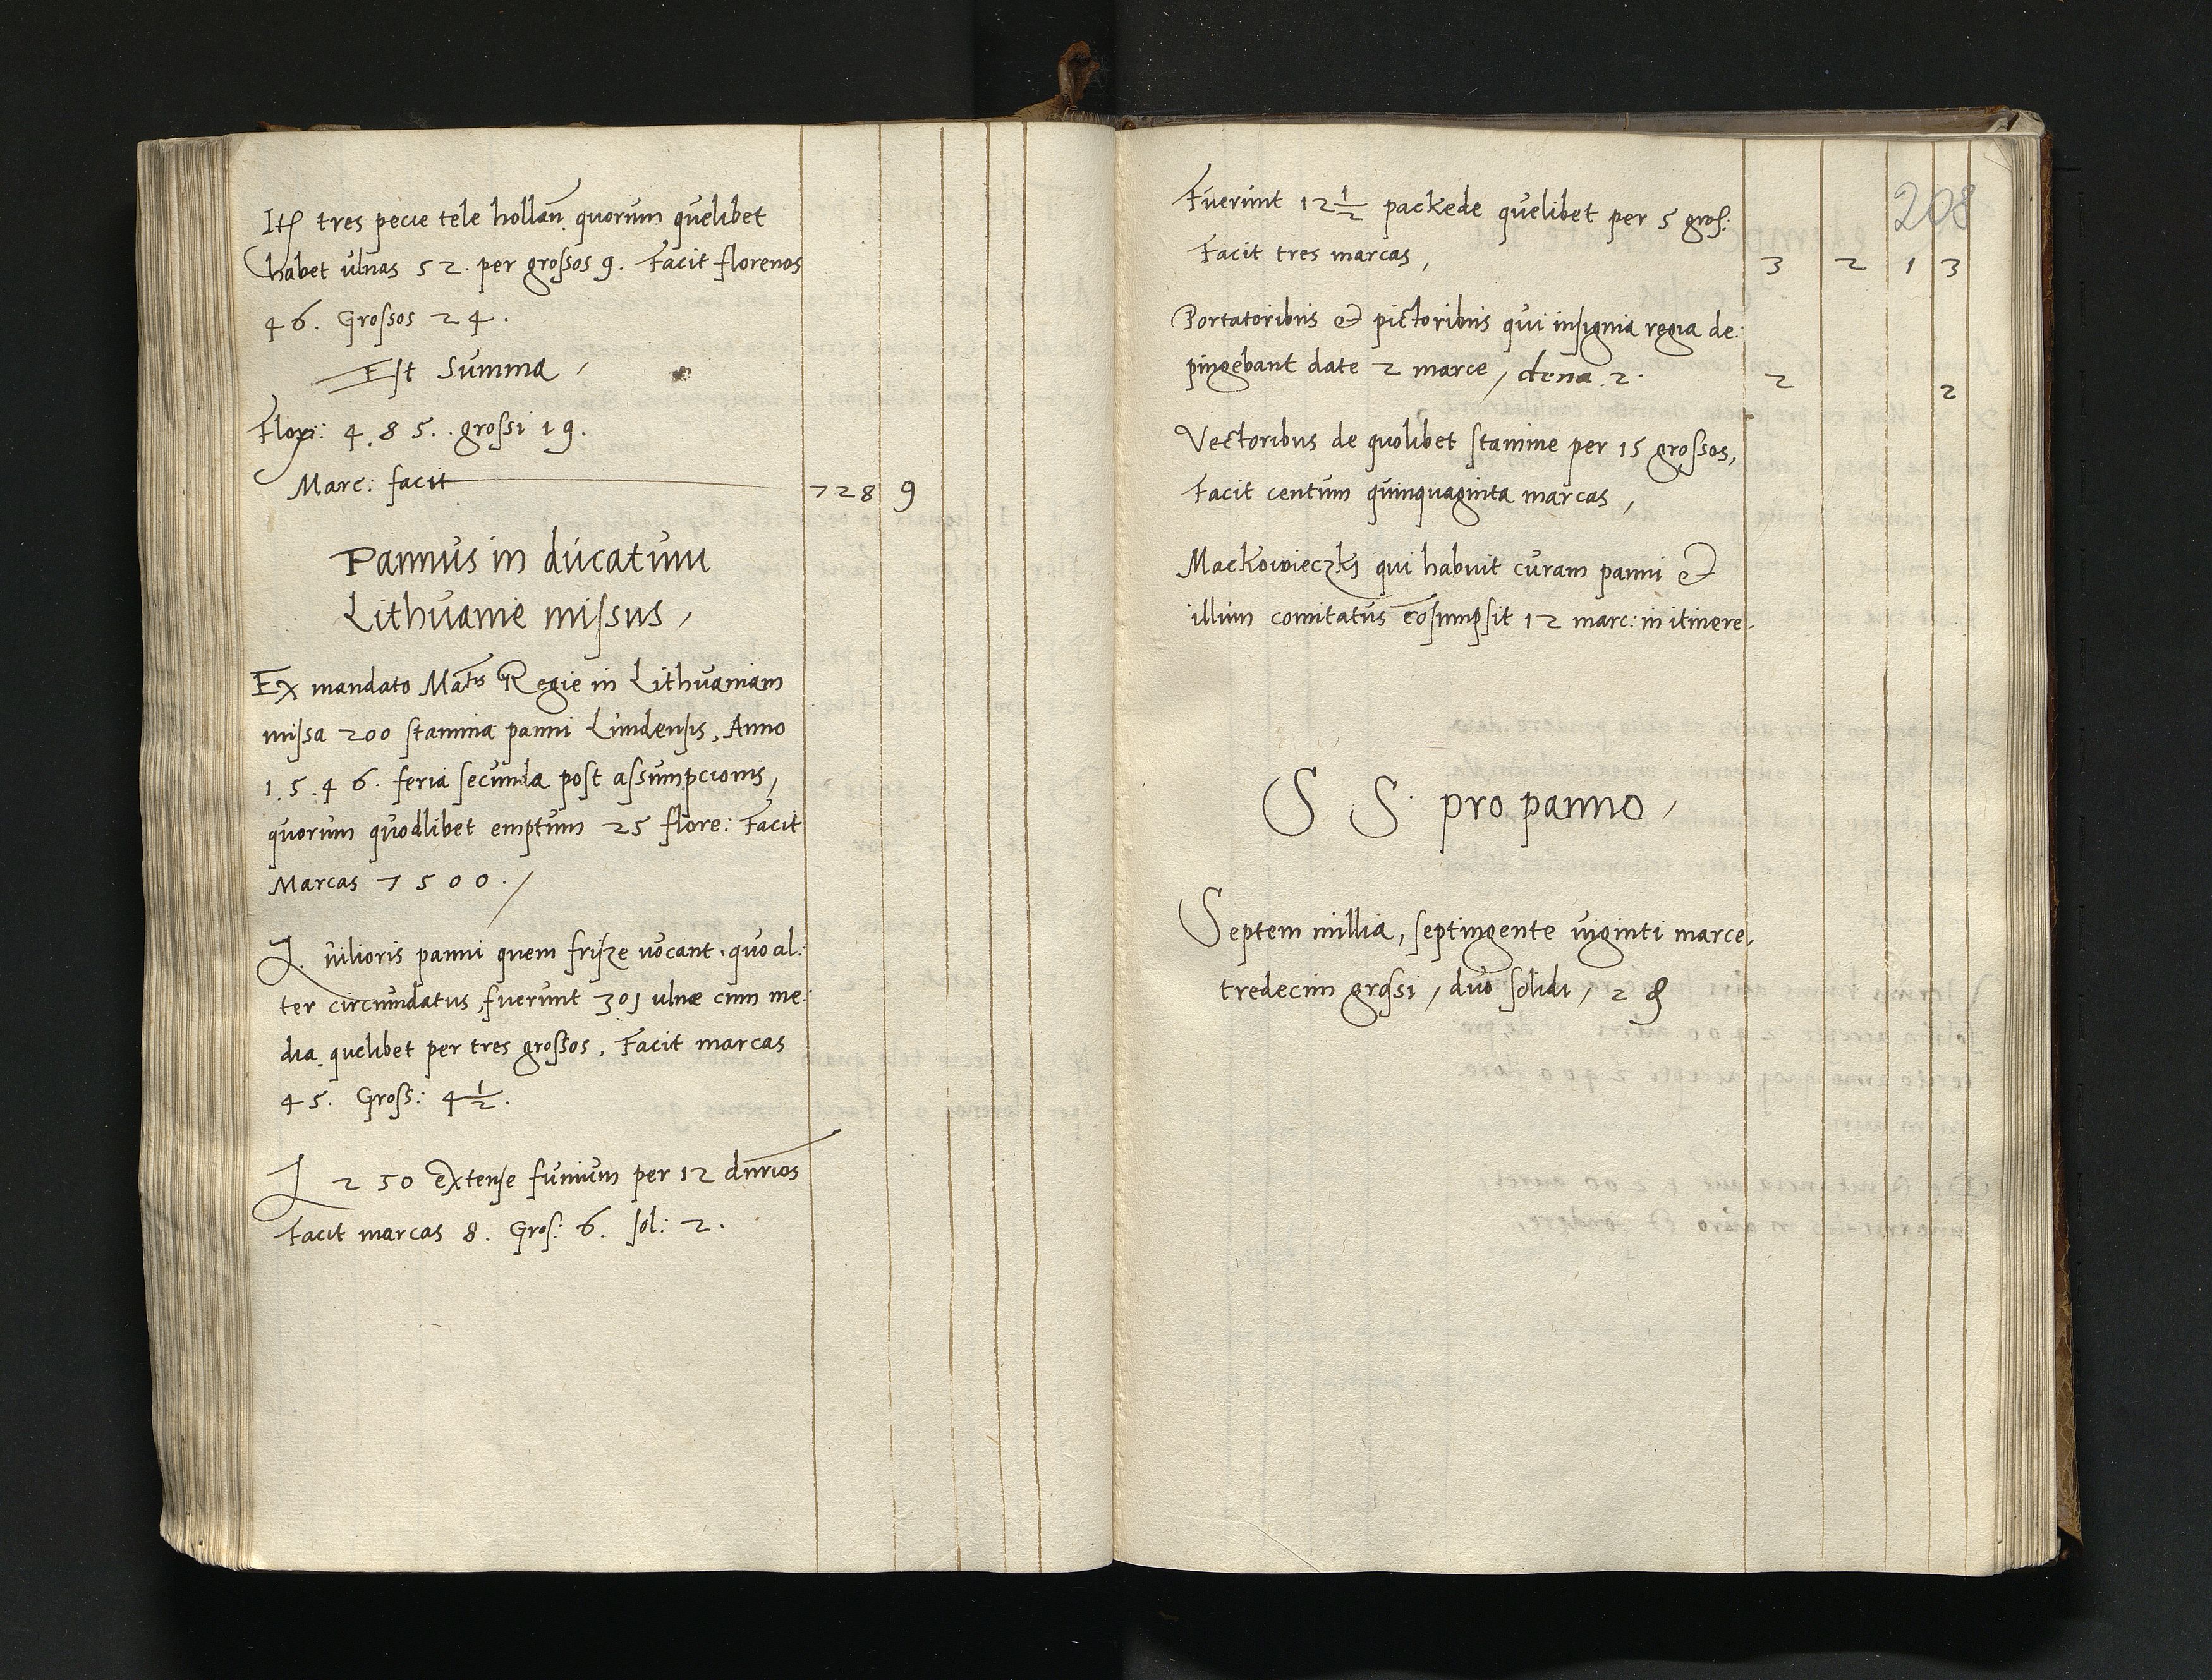 Itꝫ tres pecie tele hollan̄. quorum quelibet
habet ulnas 52. per grossos 9. Facit florenos
46. Grossos 24.
Est Summa /
Flori: 4.85. grossi 19.
Marc: facit 728 9
Pannus in ducatum
Lithuanie missus,
Ex mandato Matis Regie in Lithuaniam
missa 200 stamina panni Lundensis, Anno
1.5.46. feria secunda post assumpcionis,
quorum quodlibet emptum 25 flore: Facit
Marcas 7500./
I. vilioris panni quem frisze vocant, quo al:
ter circumdatus, fuerunt 301 ulnæ cum me:
dia, quelibet per tres grossos, Facit marcas
45. Gross: 4 1/2.
I 250 extense funium per 12 dnrios
Facit marcas 8. Gros: 6. sol: 2.
208
Fuerunt 12 1/2 packede quelibet per 5 gros:
Facit tres marcas, 3 2 1 3
Portatoribus et pictoribus qui insignia regia de:
pingebant date 2 marce, dena. 2. 2 2
Vectoribus de quolibet stamine per 15 grossos,
Facit centum quinquaginta marcas,
Mackowieczkj qui habuit curam panni et
illum comitatus cōsumpsit 12 marc: in itinere.
S S. pro panno,
Septem millia, septingente viginti marce,
tredecim grossi, duo solidi, 2 ₰